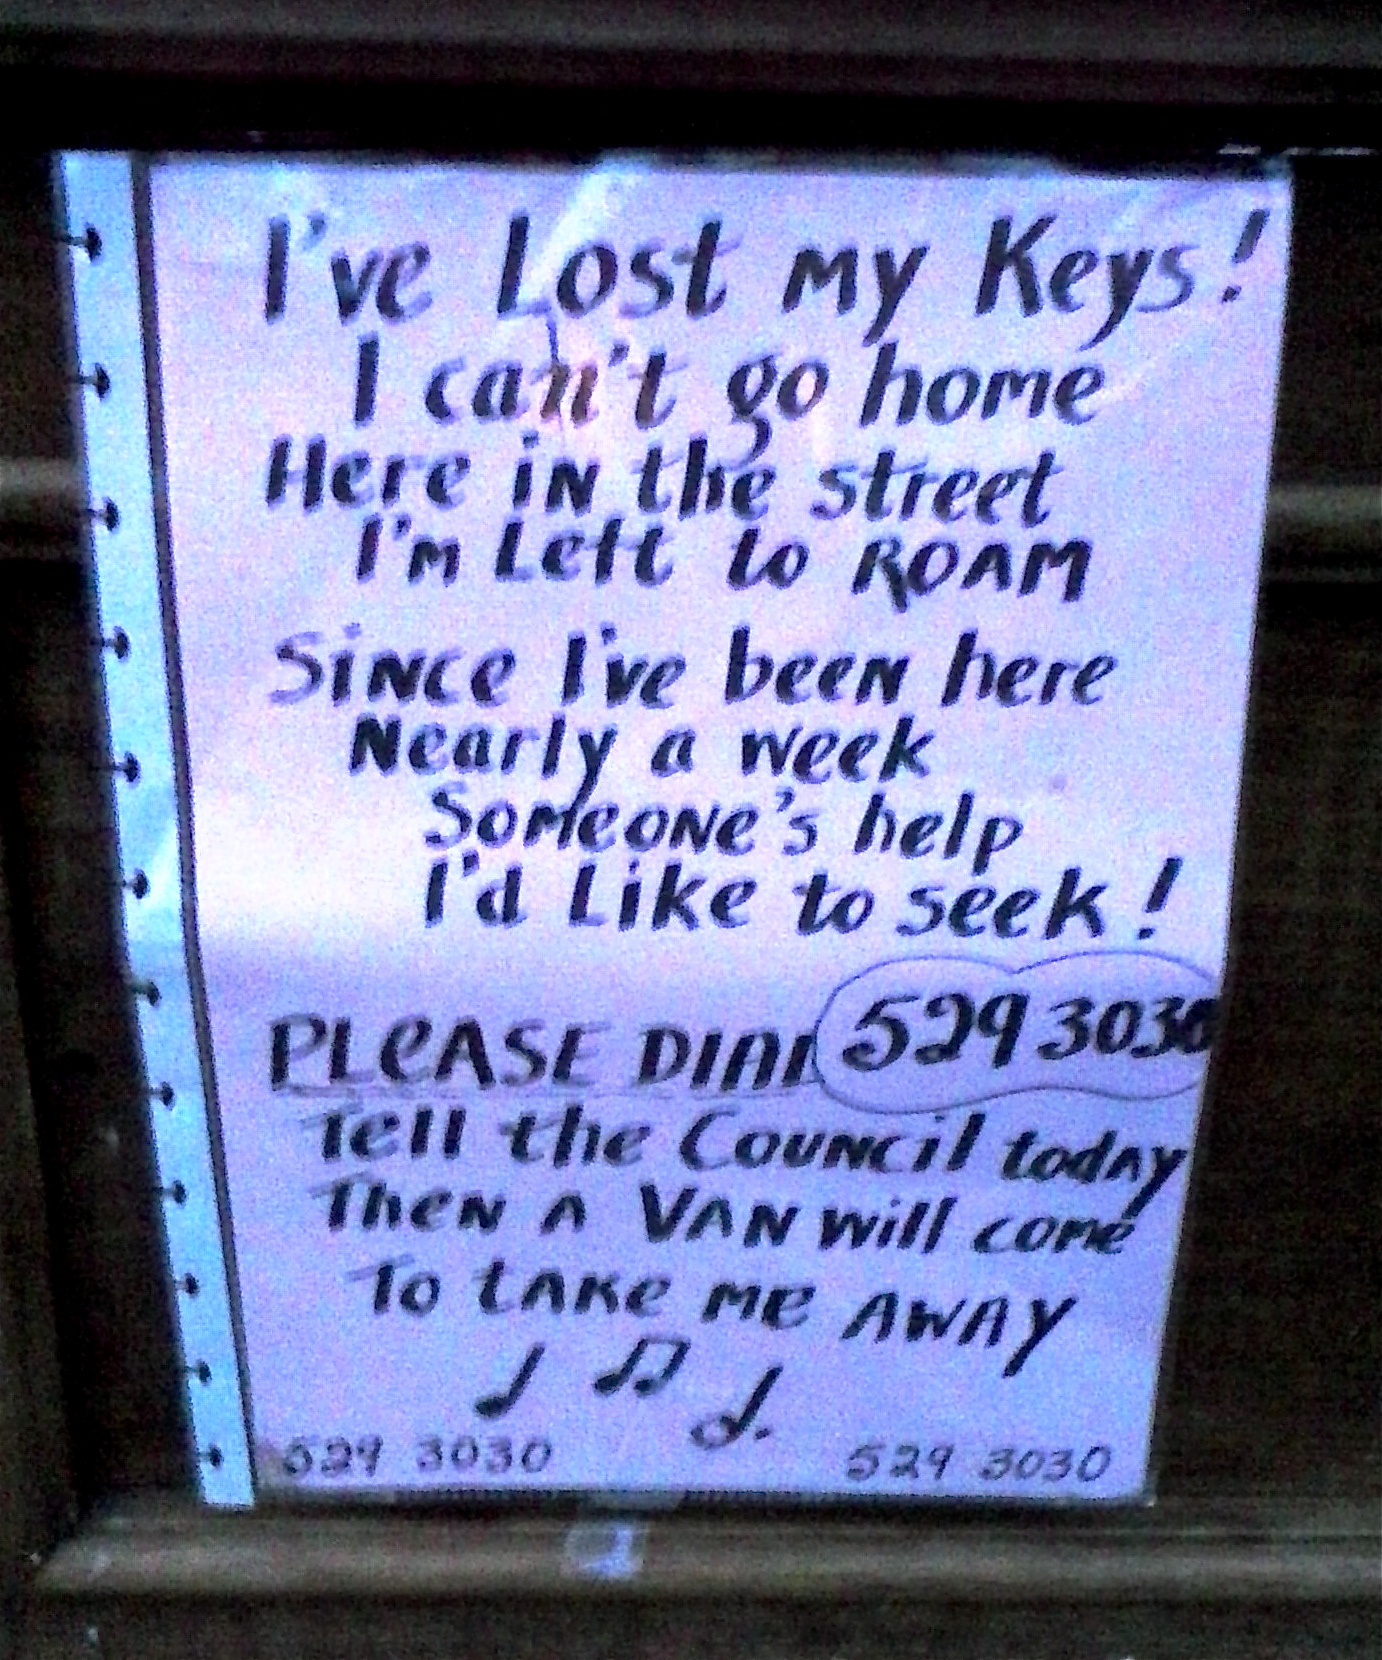 I've Lost my Keys!
I can't go home
Here in the street
I'm Left to ROAM
Since I've been here
Nearly a week
Someone's help
I'd Like to seek!
PLeASE DIAL 529 3030
Tell the Council today
Then A VAN will come
To tAKe Me AWAY
529 3030 529 3030